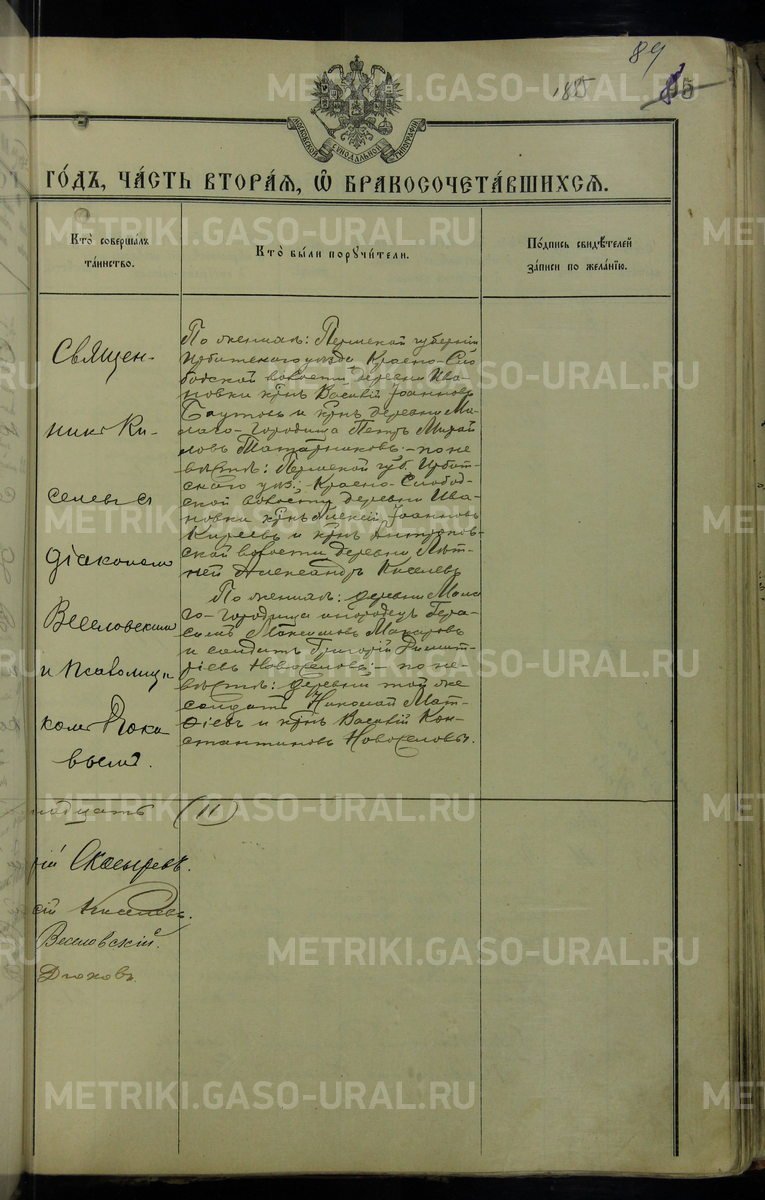 89
1885
85
МОСКОВСКОЙ СѴНОДАЛЬНОЙ ТИПОГРАФІИ
ГО́ДЪ, ЧА́СТЬ ВТОРА́Ѧ, Ѽ БРАКОСОЧЕТА́ВШИХСѦ.
Кто̀ соверша́лъ
та́инство.
Кто̀ бы́ли порꙋчи́тели.
По́дпись свидѣ́телей
за́писи по жела́нїю.
Священ-
никъ Ки-
селевъ съ
діакономъ
Веселовскимъ
и псаломщи-
комъ Дяко-
вымъ.
По женихѣ: Пермской губерніи
Ирбитскаго уѣзда Красно-Сло-
бодской волости деревни Ива-
новки крнъ Василій Іоанновъ
и крнъ деревни Ма-
лаго-Городища Петръ Михай-
ловъ Татарниковъ; – по не-
вѣстѣ: Пермской губ. Ирбит-
скаго уѣз. Красно-Слобод-
ской волости деревни Ива-
новки крнъ Алексій Іоанновъ
Киреевъ и крнъ
ской волости деревни
Александръ Киселевъ
По женихѣ: деревни Мала-
го-Городища инородецъ Гера-
симъ Максимовъ Макаровъ
и солдатъ Григорій Димит-
ріевъ Новоселовъ; – по не-
вѣстѣ: деревни той же
солдатъ Николай Мат-
ѳіевъ и крнъ Василій Кон-
стантиновъ Новоселовы.
надцать (11)
рій Скосыревъ.
сій Киселевъ.
Веселовскій.
Дьяковъ.
METRIKI.GASO-URAL.RU